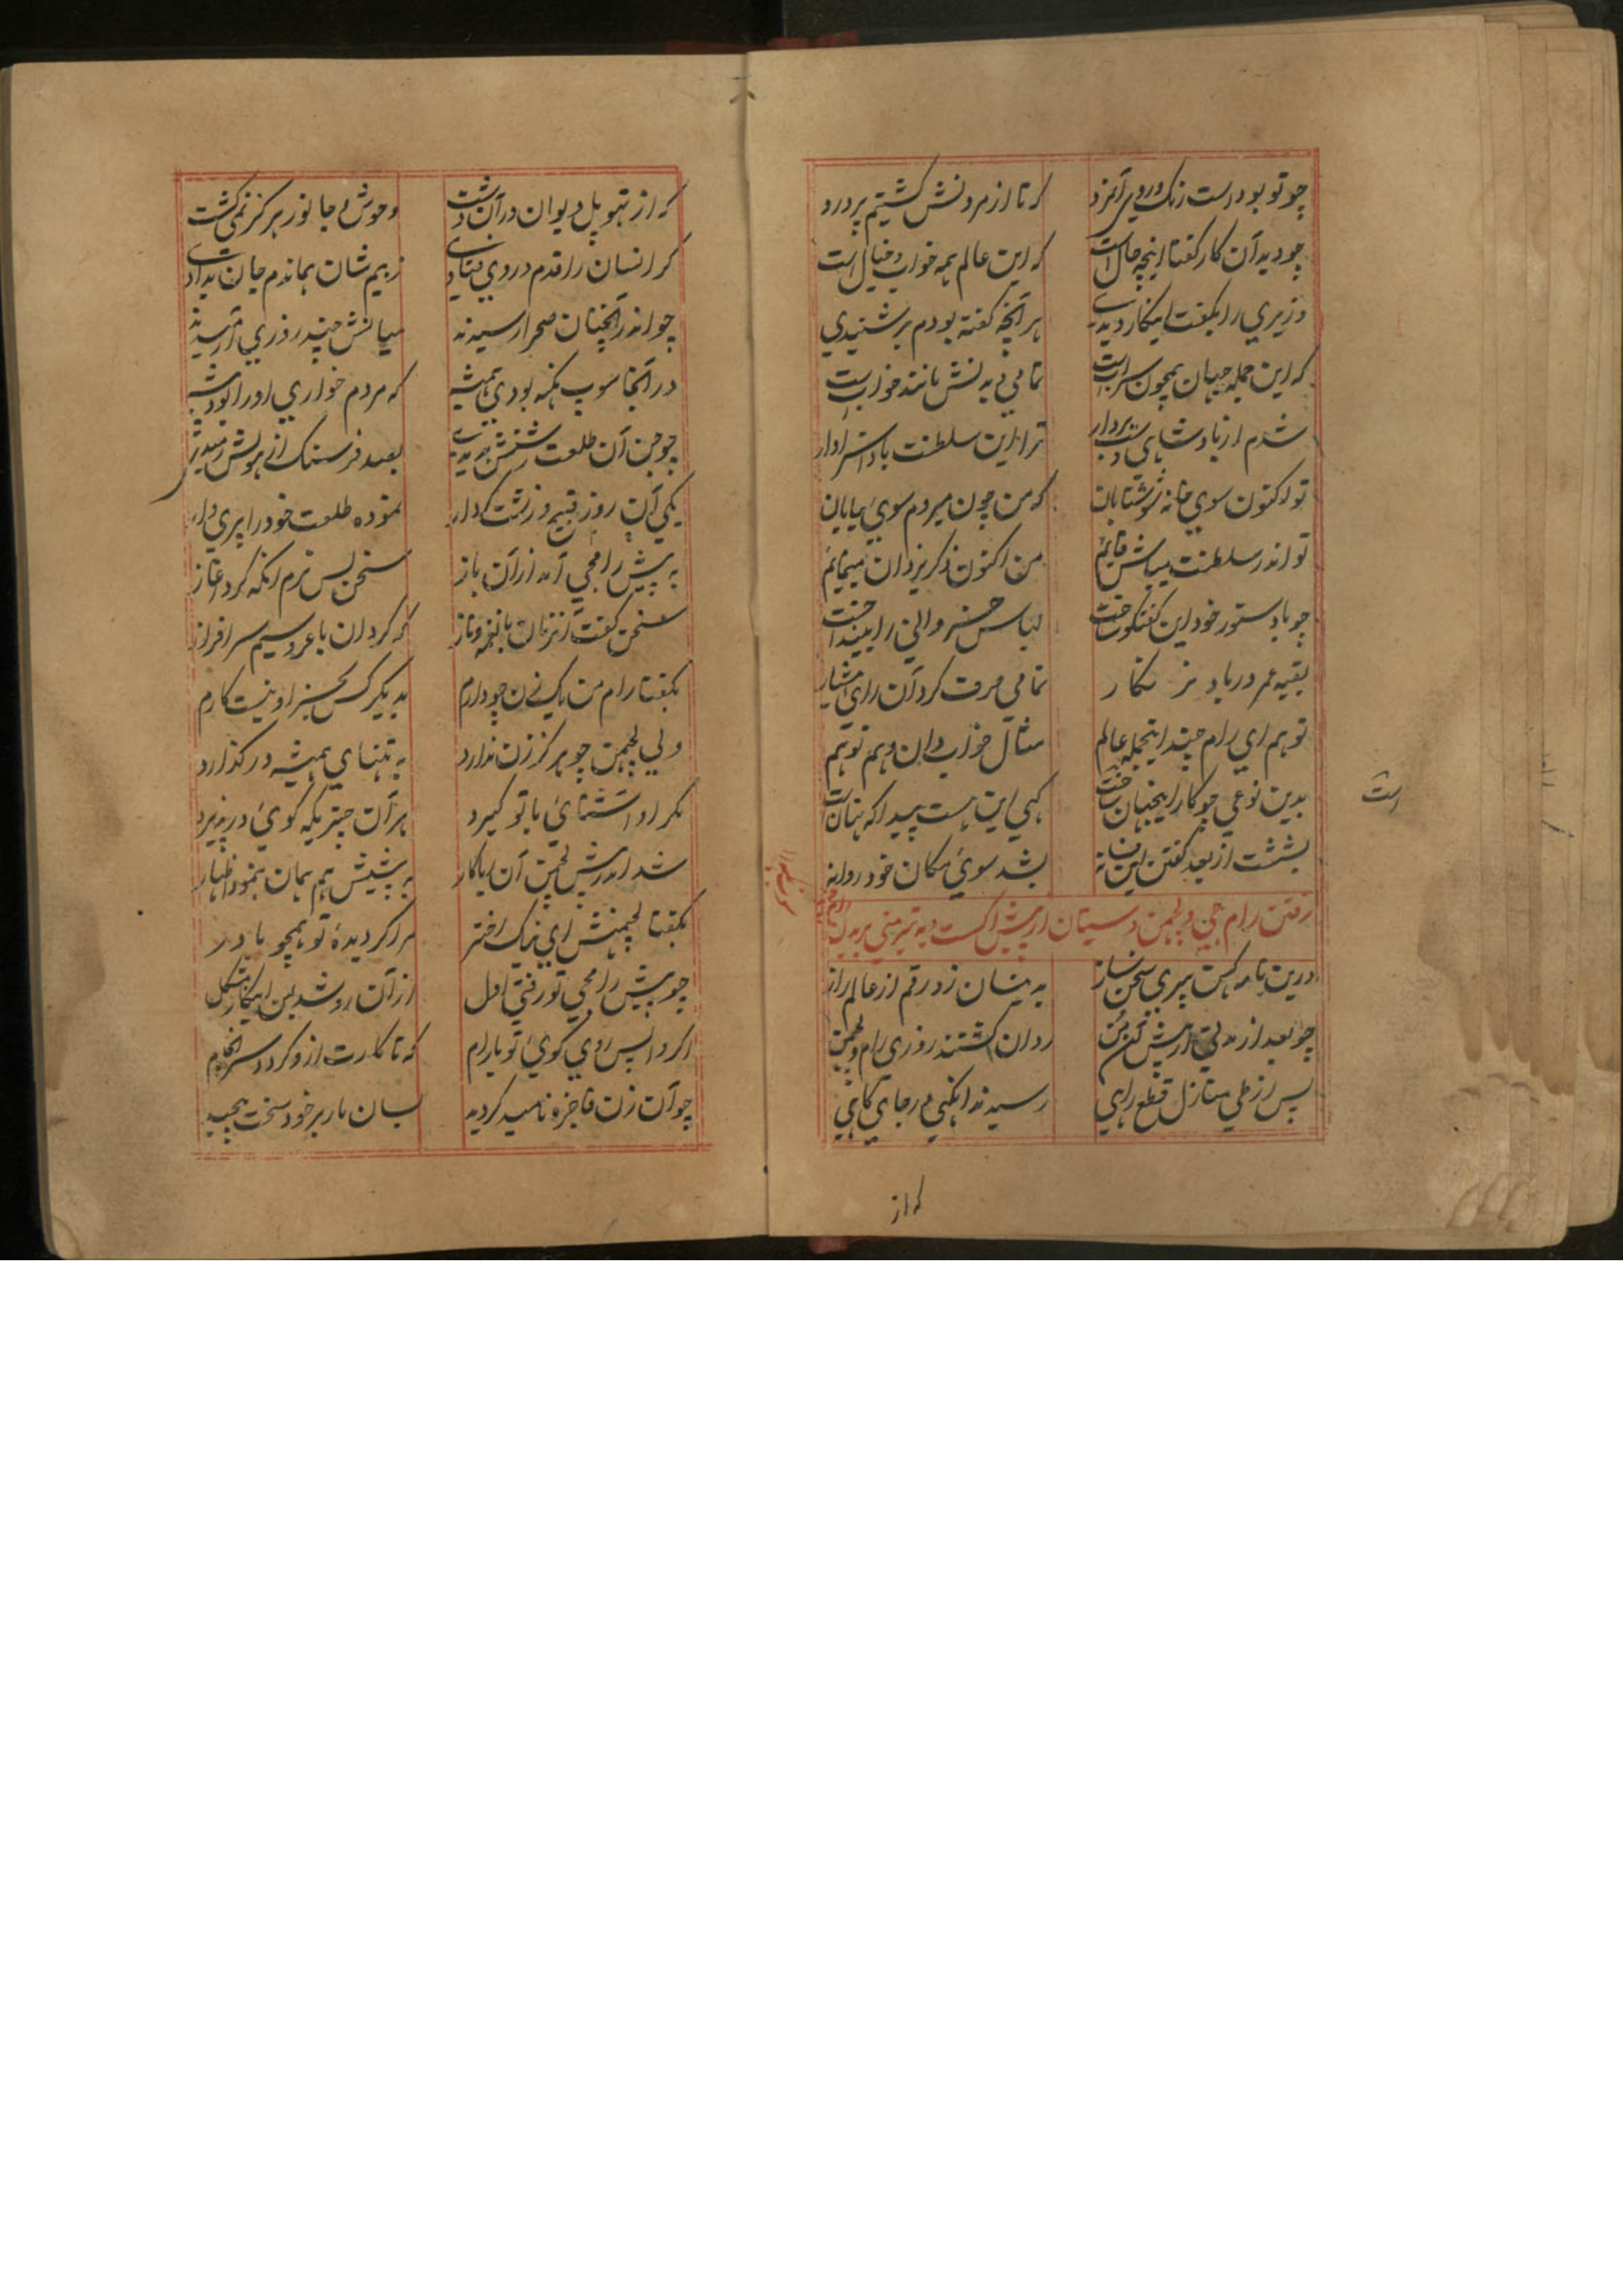 چو تو بود است زنک و روی آمرد که تا از مردنش گشتیم پر درد
چو دید آن کار گفتا اینچه حال است که این عالم همه خواب و خیال است
وزیری را بگفت اینکار دیدی هر آنچه گفته بودم بر شنیدی
که این جمله جهان همچون سراب است تمامی دیدنش مانند خواب است
شدم از پادشاهی دست بردار ترا این سلطنت بادا سزاوار
تو اکنون سوی خانه شو شتابان که من چون میروم سوی بیابان
تو اندر سلطنت میباش قائم من اکنون ذکر یزدان مینمایم
چو با دستور خود این گفتگو لباس خسروانی را
بقیه عمر در یاد تمامی صرف کرد آن رای
تو هم ای رام اینجمله عالم مثال خواب دان و هم توهم
بدین نوعی چو کار اینجهان است کهی این هست پیدا که نهان است
بشست از بعد گفتن این فسانه بشد سوی مکان خود روانه
رفتن رام جی و لچمن و سیتا از پیش اکست
درین نامه کهن پیری سخن ساز بدینسان زد رقم از عالم راز
چو بعد از مدتی از پیش روان گشتند روزی رام و لچمن
پس از طی منازل قطع راهی رسیدند انگهی در جای گاهی
که از
است
که از دیوان در آن دشت وحوش و جانور هرگز نمی گشت
گر انسان را قدم در وی فتادی ز بیم شان هماندم جان بدادی
چو اندر آنچنان صحرا رسیدند میانش چند روزی آرمیدند
در آنجا سوپ نکه بودی همیشه که مردم خواری او را بود پیشه
چو جن آن طلعت بعد فرسنگ از هولش
یکی آن روز قبیح و زشت کردار نموده طلعت خود را پری وار
به پیش رامجی آمد از آن باز سخن بس نرم انگه کرد آغاز
سخن گفت آنزمان با نغمه و ناز که گردان با عروسیم سرافراز
بگفتا رام من یک زن چو دارم به دیگر کس بجز او نیست کارم
ولی لچمن چو هرگز زن ندارد به تنهای همیشه در گذارد
مگر او آشنائی با تو گیرد هر آن چیزیکه گوئی در پذیرد
شد اندر پیش لچمن آن به پیشش هم همان بنمود اظهار
بگفتا لچمنش ای نیک اختر مرا گردیدهٔ تو همچو مادر
چو پیش رامجی تو رفتی اول از آن رو شد بمن اینکار مشکل
اگر واپس روی گوئی تو با رام که تا کارت ازو گردد سرانجام
چو آن زن فاجره نامید گردید بسان مار بر خود سخت پیچید